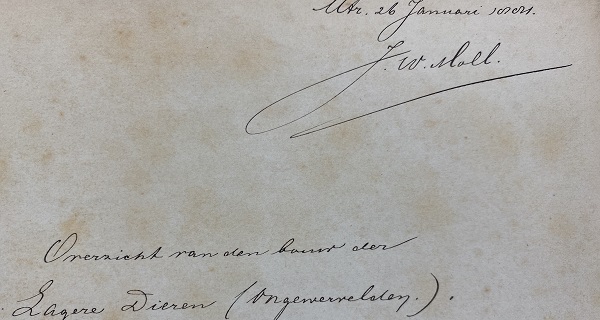 Utr. 26 Januari 1881.
J. W. Moll.
Overzicht van den bouw der
Lagere Dieren (Ongewervelden.).